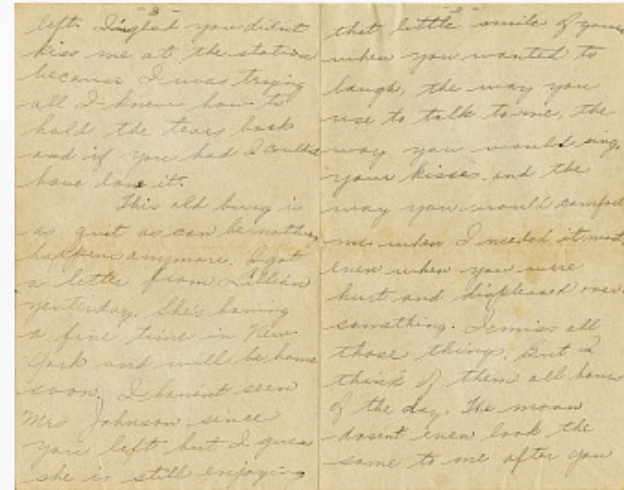 -3-
left. I'm glad you didn't
kiss me at the station
because I was trying
all I knew how to
hold the tears back
and if you had I couldnt
have done it.
This old burg is
as quit as can be nothing
happens anymore. I got
a letter from Lillian
yesterday. She's having
a fine time in New
York and will be home
soon. I havint seen
Mrs Johnson since
you left but I guess
she is still enjoying
that little smile of yours
when you wanted to
laugh, the way you
use to talk to me, the
way you would sing,
your kisses and the
way you would comfort
me when I needed it most,
even when you were
hurt and displeased over
something. I miss all
those things. But I
think of them all hours
of the day. The moon
dosint even look the
same to me after you